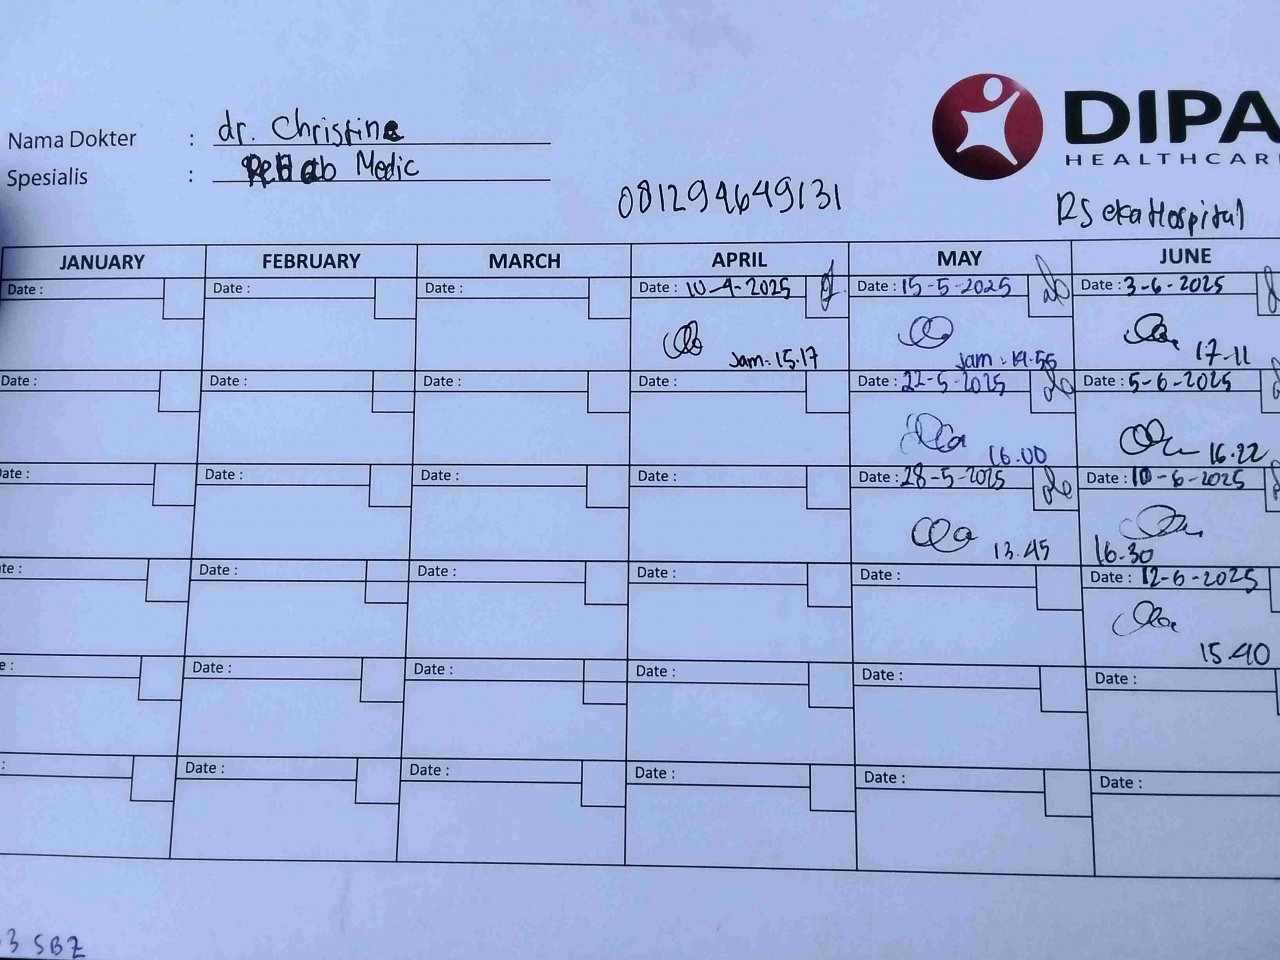 Nama Dokter : dr. Christine
Spesialis : Rehab Medic
DIPA
HEALTHCAR
081294649131
RS eka Hospital
JANUARY FEBRUARY MARCH APRIL MAY JUNE
Date : Date : Date : Date : 10-4-2025 Date : 15-5-2025 Date : 3-6-2025
Jam : 15.17 Jam : 14.56 17-11
Date : Date : Date : Date : Date : 22-5-2025 Date : 5-6-2025
16.00 16.22
ate : Date : Date : Date : Date : 28-5-2025 Date : 10-6-2025
13.45 16-30
te : Date : Date : Date : Date : Date : 12-6-2025
15.40
e : Date : Date : Date : Date : Date :
: Date : Date : Date : Date : Date :
3 SBZ